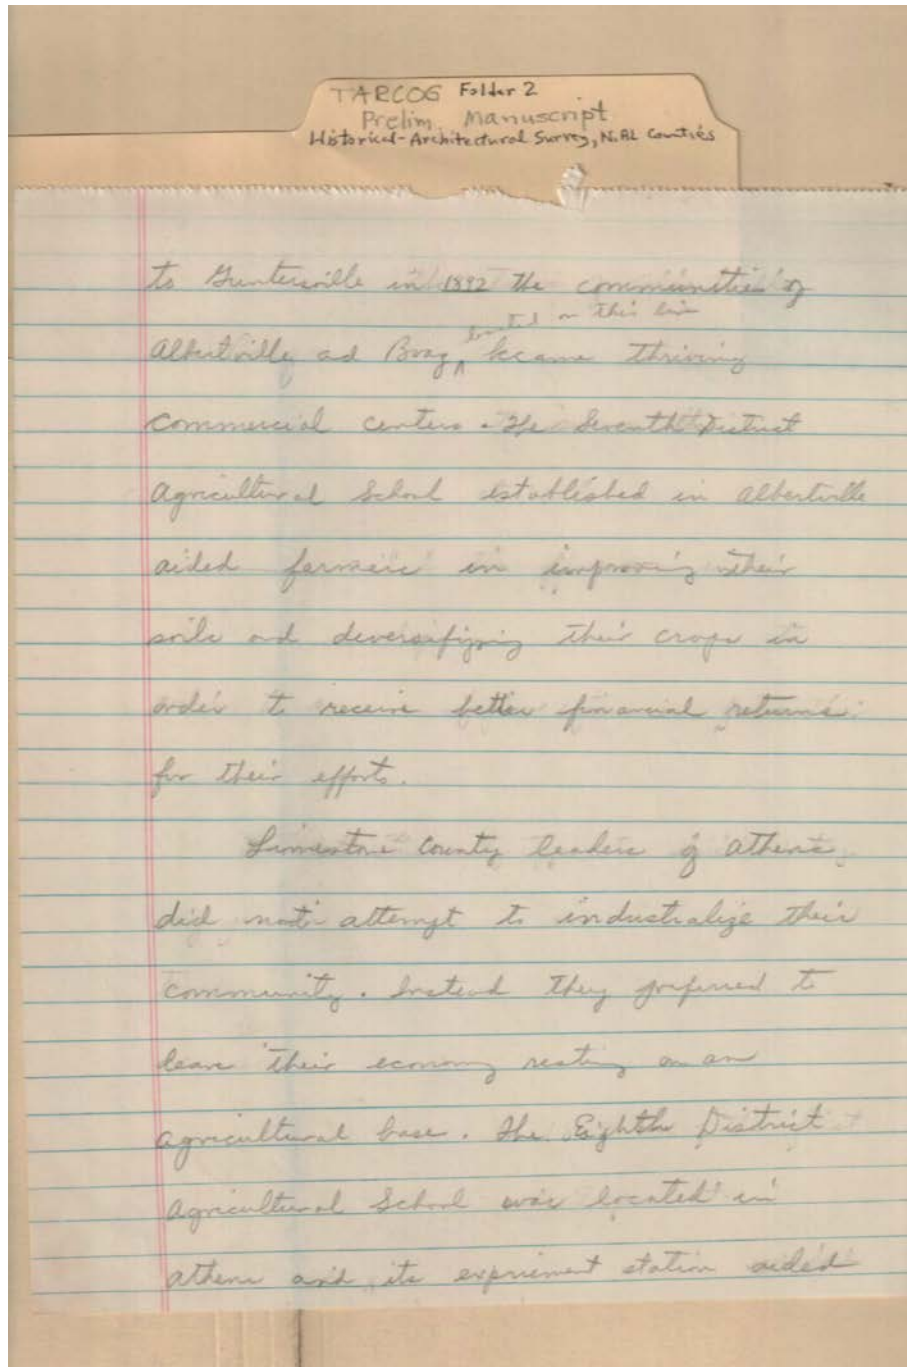 TARCOG Folder 2
Prelim. Manuscript
Historical-Architectural Survey, N. AL Counties
to Guntersville in 1892 the communities of
located on this line
Albertville ad Boaz ^ became thriving
commercial centers. The Seventh District
Agricultural School established in Albertville
aided farmers in improving their
soils and deversifying their crops in
order to receive better financial returns
for their efforts.
Limestone County leaders of Athens
did not attempt to industralize their
community. Instead they preferred to
leave their economy resting on an
agricultural base. The Eighth District
Agricultural School was located in
Athens and its expriement station aided